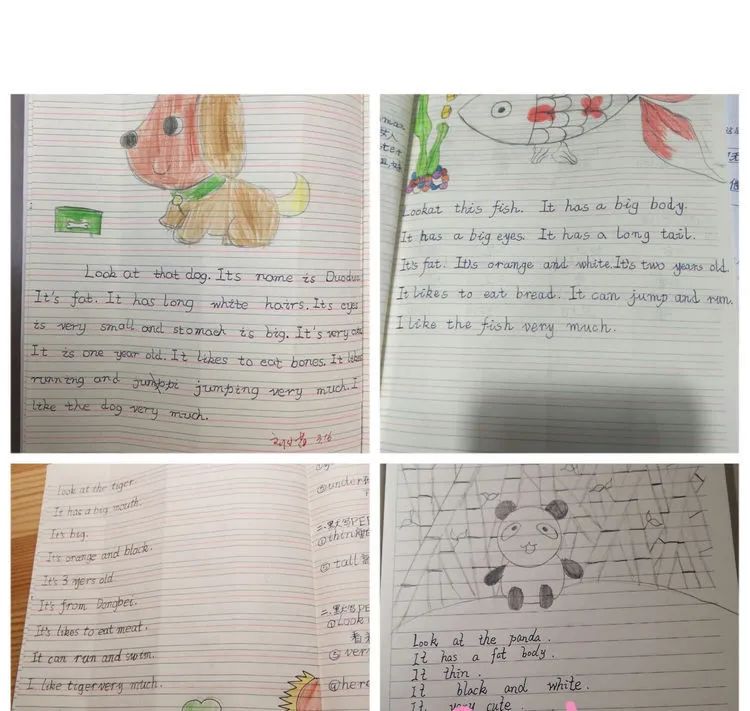 Look at that dog. Its name is Duoduo
It's fat. It has long white hairs. Its eyes
is very small and stomach is big. It's very
It is one year old. It likes to eat bones. It likes
running and jumping very much. I
like the dog very much.
3.16
Lookat this fish. It has a big body.
It has a big eyes. It has a long tail.
It's fat. It's orange and white. It's two years old.
It likes to eat bread. It can jump and run.
I like the fish very much.
Look at the tiger.
It has a big mouth.
It's big.
It's orange and black.
It's 3 yers old
It's from Dongbei.
It's likes to eat meat.
It can run and swim.
I like tiger very much.
③under
二.默写PE
①thin
⑤tall
三.默写PE
①Look
⑤ver
④here
Look at the panda.
It has a fat body.
It thin.
It black and white.
It very cute.